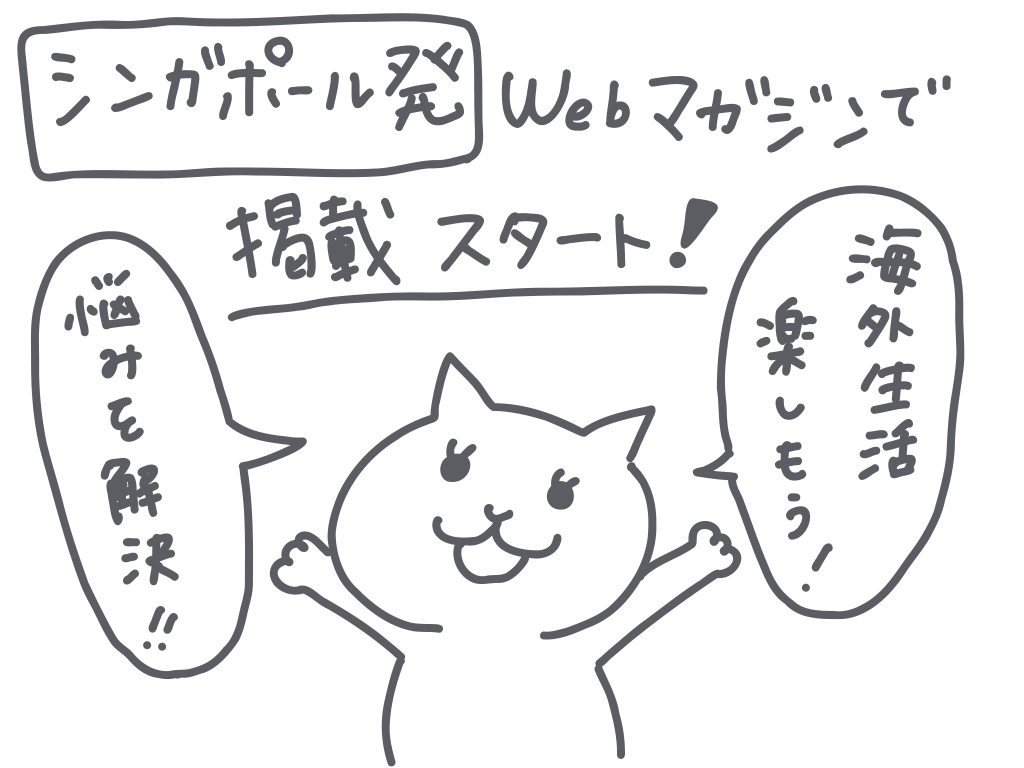 シンガポール発 Webマガジンで
掲載スタート!
海外生活
楽しもう!
悩みを解決!!